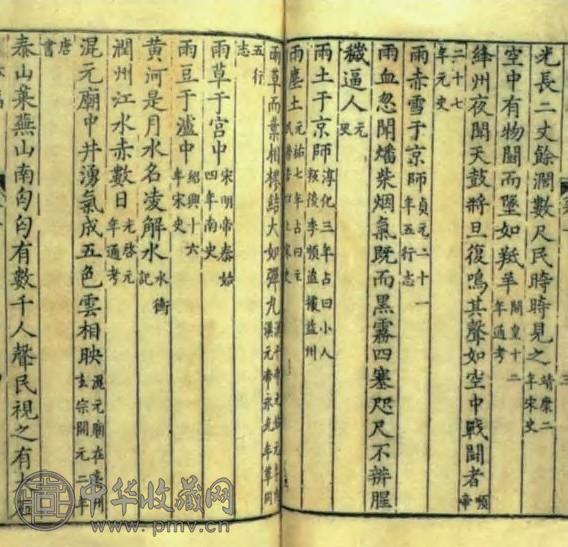 光長二丈餘濶數尺民時時見之靖康二年宋史
空中有物鬭而墜如羝羊開皇十二年通考
絳州夜聞天鼓將旦復鳴其聲如空中戰鬭者順帝
二十七年元史
雨赤雪于京師貞元二十一年五行志
雨血忽聞燔柴烟氣既而黑霧四塞咫尺不辨腥
穢逼人元史
雨土于京師淳化三年占曰小人叛後李順盜據益州
雨塵土元祐七年占曰主民勞苦宋史
雨草而葉相樛結大如彈丸漢元帝永光年草同
五行志
雨草于宮中宋明帝泰始四年南史
雨豆于瀘中紹興十六年宋史
黄河是月水名凌解水水衡記
潤州江水赤數日光啓元年通考
混元廟中井湧氣成五色雲相映混元廟在亳州玄宗開元二年
唐書
泰山萊蕪山南匈匈有數千人聲民視之有
中华收藏网
www.pmv.cn